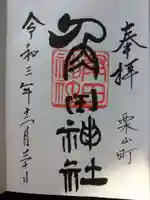 奉拝
栗山町
角田神社
令和三年十二月三十日